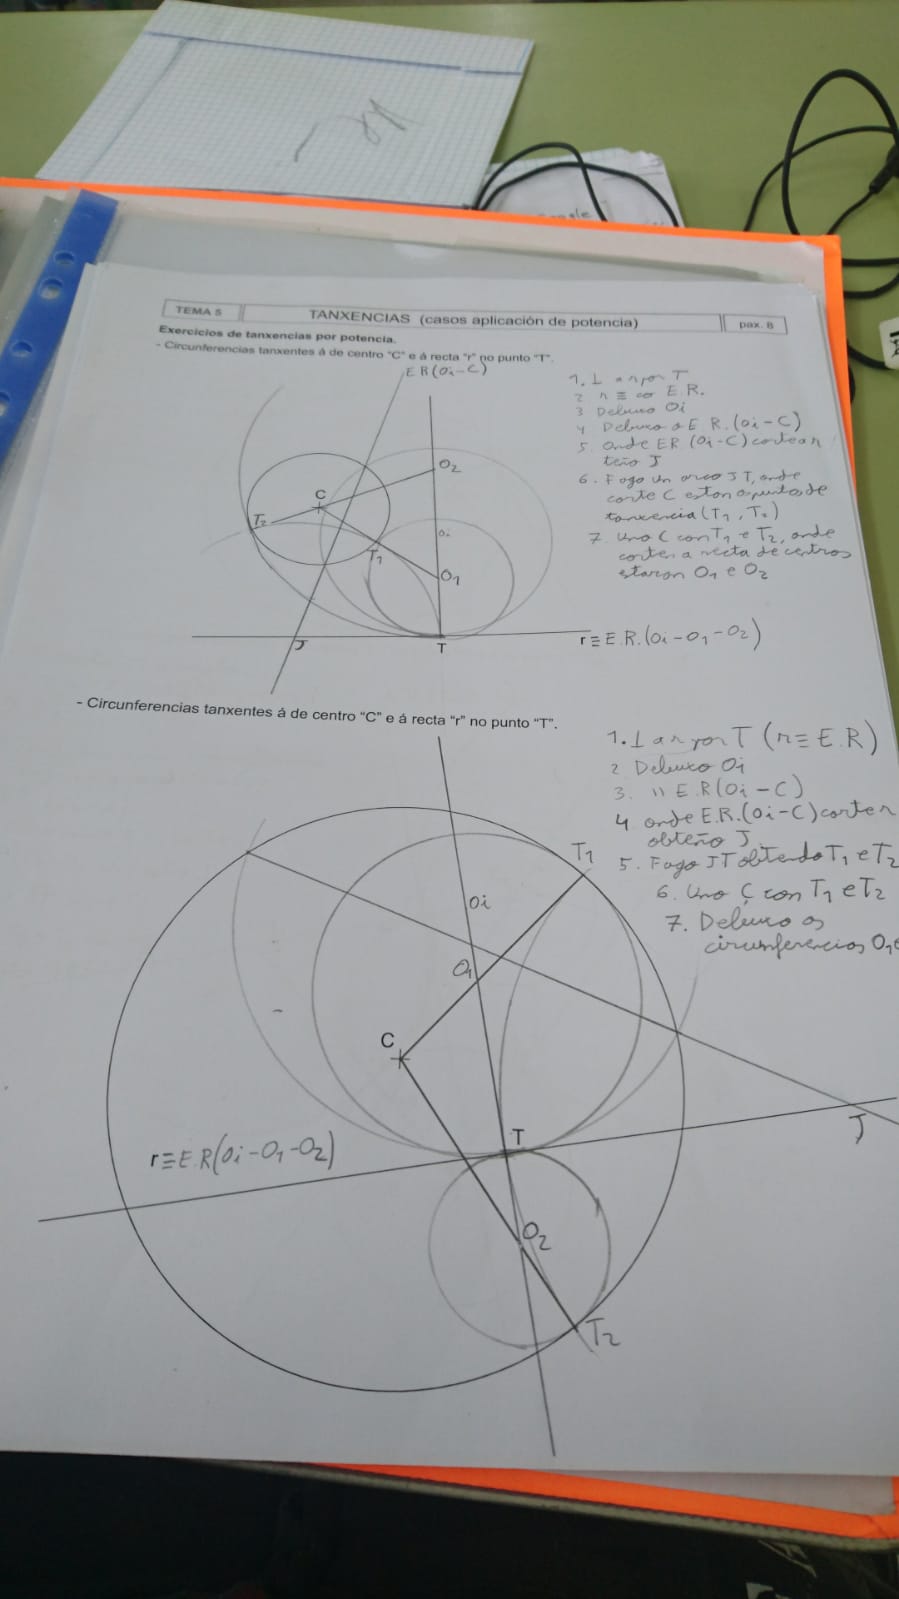 TEMA 5
TANXENCIAS (casos aplicación de potencia)
pax. 8
Exercicios de tanxencias por potencia.
- Circunferencias tanxentes á de centro "C" e á recta "r" no punto "T".
E R(Oi-C)
1. ⊥ a r por T
2 r ≡ E.R.
3 Debuxo Oi
4 Debuxo o E.R.(Oi-C)
5. Onde ER (Oi-C) cortean
teño J
6. Fago un arco JT, onde
corte C estan os puntos de
tanxencia (T1, T2)
7. Uno C con T1 e T2, onde
corten a recta de centros
estaran O1 e O2
O2
C
T2
Oi
T1
O1
J
T
r≡E.R.(Oi-O1-O2)
- Circunferencias tanxentes á de centro "C" e á recta "r" no punto "T".
1. ⊥ a r por T (r≡E.R)
2 Debuxo Oi
3. " E.R(Oi-C)
4 onde E.R.(Oi-C) corten
obteño J
5. Fago JT obtendo T1 e T2
6. Uno C con T1 e T2
7. Debuxo as
circunferencias O1
T1
Oi
O1
C
T
J
r≡E.R(Oi-O1-O2)
O2
T2